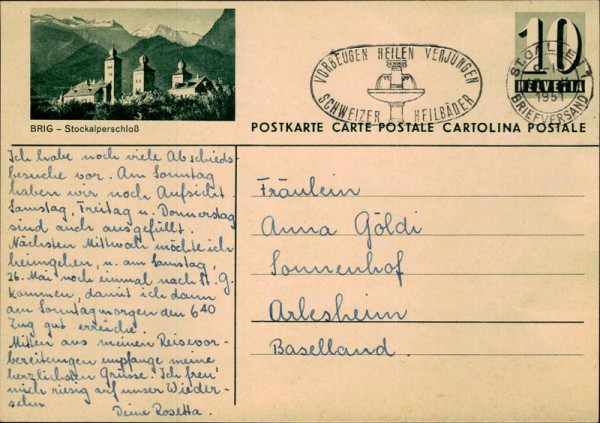 BRIG – Stockalperschloß
VORBEUGEN HEILEN VERJÜNGEN
SCHWEIZER HEILBÄDER
10
HELVETIA
ST. GALLEN 1
1951
BRIEFVERSAND
POSTKARTE CARTE POSTALE CARTOLINA POSTALE
Ich habe noch viele Abschieds-
besuche vor. Am Sonntag
haben wir noch Aufsicht.
Samstag, Freitag u. Donnerstag
sind auch ausgefüllt.
Nächsten Mittwoch möchte ich
heimgehen, u. am Samstag,
26. Mai noch einmal nach St. G.
kommen, damit ich dann
am Sonntagmorgen den 6 40
Zug gut erreiche.
Mitten aus meinen Reisevor-
bereitungen empfange meine
herzlichsten Grüsse. Ich freu'
mich riesig auf unser Wieder-
sehn
Deine Rosetta.
Fräulein
Anna Göldi
Sonnenhof
Arlesheim
Baselland.